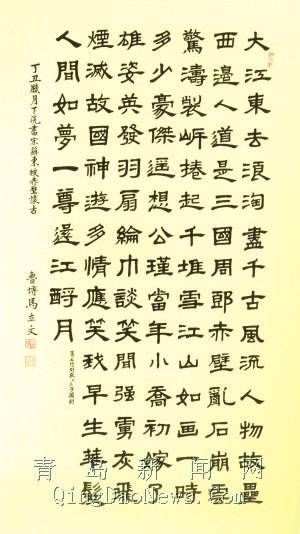 大江東去浪淘盡千古風流人物故壘
西邊人道是三國周郎赤壁亂石崩雲
驚濤裂岸捲起千堆雪江山如画一時
多少豪傑遥想公瑾當年小喬初嫁了
雄姿英發羽扇綸巾談笑間强虜灰飛
煙滅故國神遊多情應笑我早生華髮
人間如夢一尊還江酹月
丁丑臘月下浣書宋蘇東坡赤壁懷古
魯博馬立文
青岛新闻网
QingDaoNews.Com